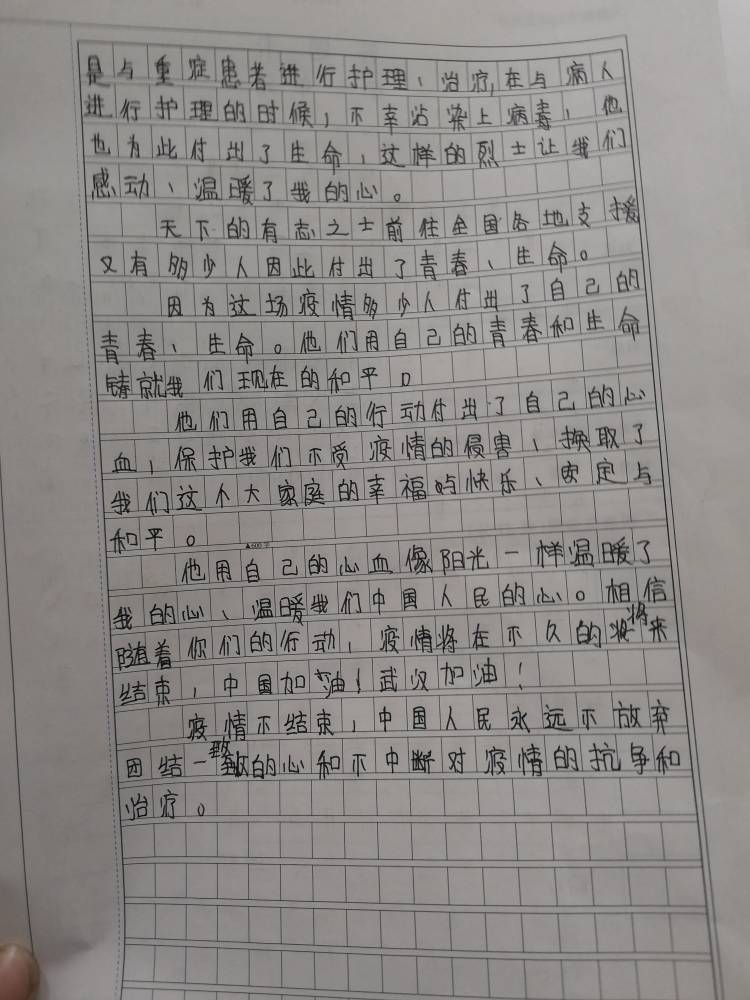 是与重症患者进行护理、治疗,在与病人
进行护理的时候，不幸沾染上病毒，他
也为此付出了生命，这样的烈士让我们
感动、温暖了我的心。
天下的有志之士前往全国各地支援
又有多少人因此付出了青春、生命。
因为这场疫情多少人付出了自己的
青春、生命。他们用自己的青春和生命
铸就我们现在的和平。
他们用自己的行动付出了自己的心
血，保护我们不受疫情的侵害、换取了
我们这个大家庭的幸福与快乐、安定与
和平。
▲600字
他用自己的心血像阳光一样温暖了
我的心、温暖我们中国人民的心。相信
随着你们的行动，疫情将在不久的将来
结束，中国加油！武汉加油！
疫情不结束，中国人民永远不放弃
团结一致的心和不中断对疫情的抗争和
治疗。